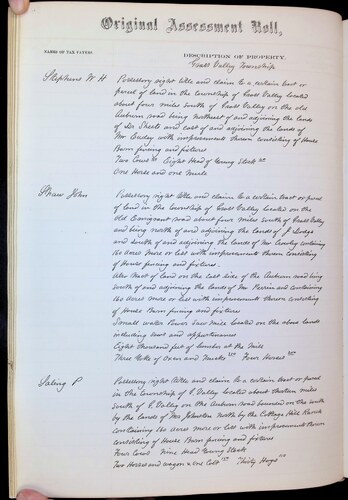 Original Assessment Roll,
NAMES OF TAX PAYERS
DESCRIPTION OF PROPERTY.
Grass Valley Township
Stephens W. H
Possessory right title and claim to a certain tract or
parcel of land in the township of Grass Valley located
about four miles south of Grass Valley on the old
Auburn road being northeast of and adjoining the lands
of and east of and adjoining the lands of
Mr with improvements thereon consisting of House
Barn fencing and fixtures
Two Cows Eight Head of Young Stock
One Horse and one Mule
Shaw John
Possessory right title and claim to a certain tract or parcel
of land in the township of Grass Valley located on the
Old Emigrant road about four miles south of Grass Valley
and being north of and adjoining the lands of J Dodge
and south of and adjoining the lands of Mr containing
160 acres more or less with improvements thereon consisting
of House fencing and fixtures
Also tract of land on the East side of the Auburn road being
south of and adjoining the lands of Mr Perrin and containing
160 acres more or less with improvements thereon consisting
of House Barn fencing and fixtures
Small water Power Saw Mill located on the above lands
including and appurtenances
Eight thousand feet of lumber at the Mill
Three Yoke of Oxen and Trucks Four Horses
Saling P
Possessory right title and claim to a certain tract or parcel
in the township of G. Valley located about thirteen miles
south of G. Valley on the Auburn road bounded on the south
by the Lands of Mr Johnston North by the Cottage Hill Ranch
containing 160 acres more or less with improvements thereon
consisting of House Barn fencing and fixtures
Four Cows Nine Head Young Stock
Two Horses and wagon & One Colt Thirty Hogs